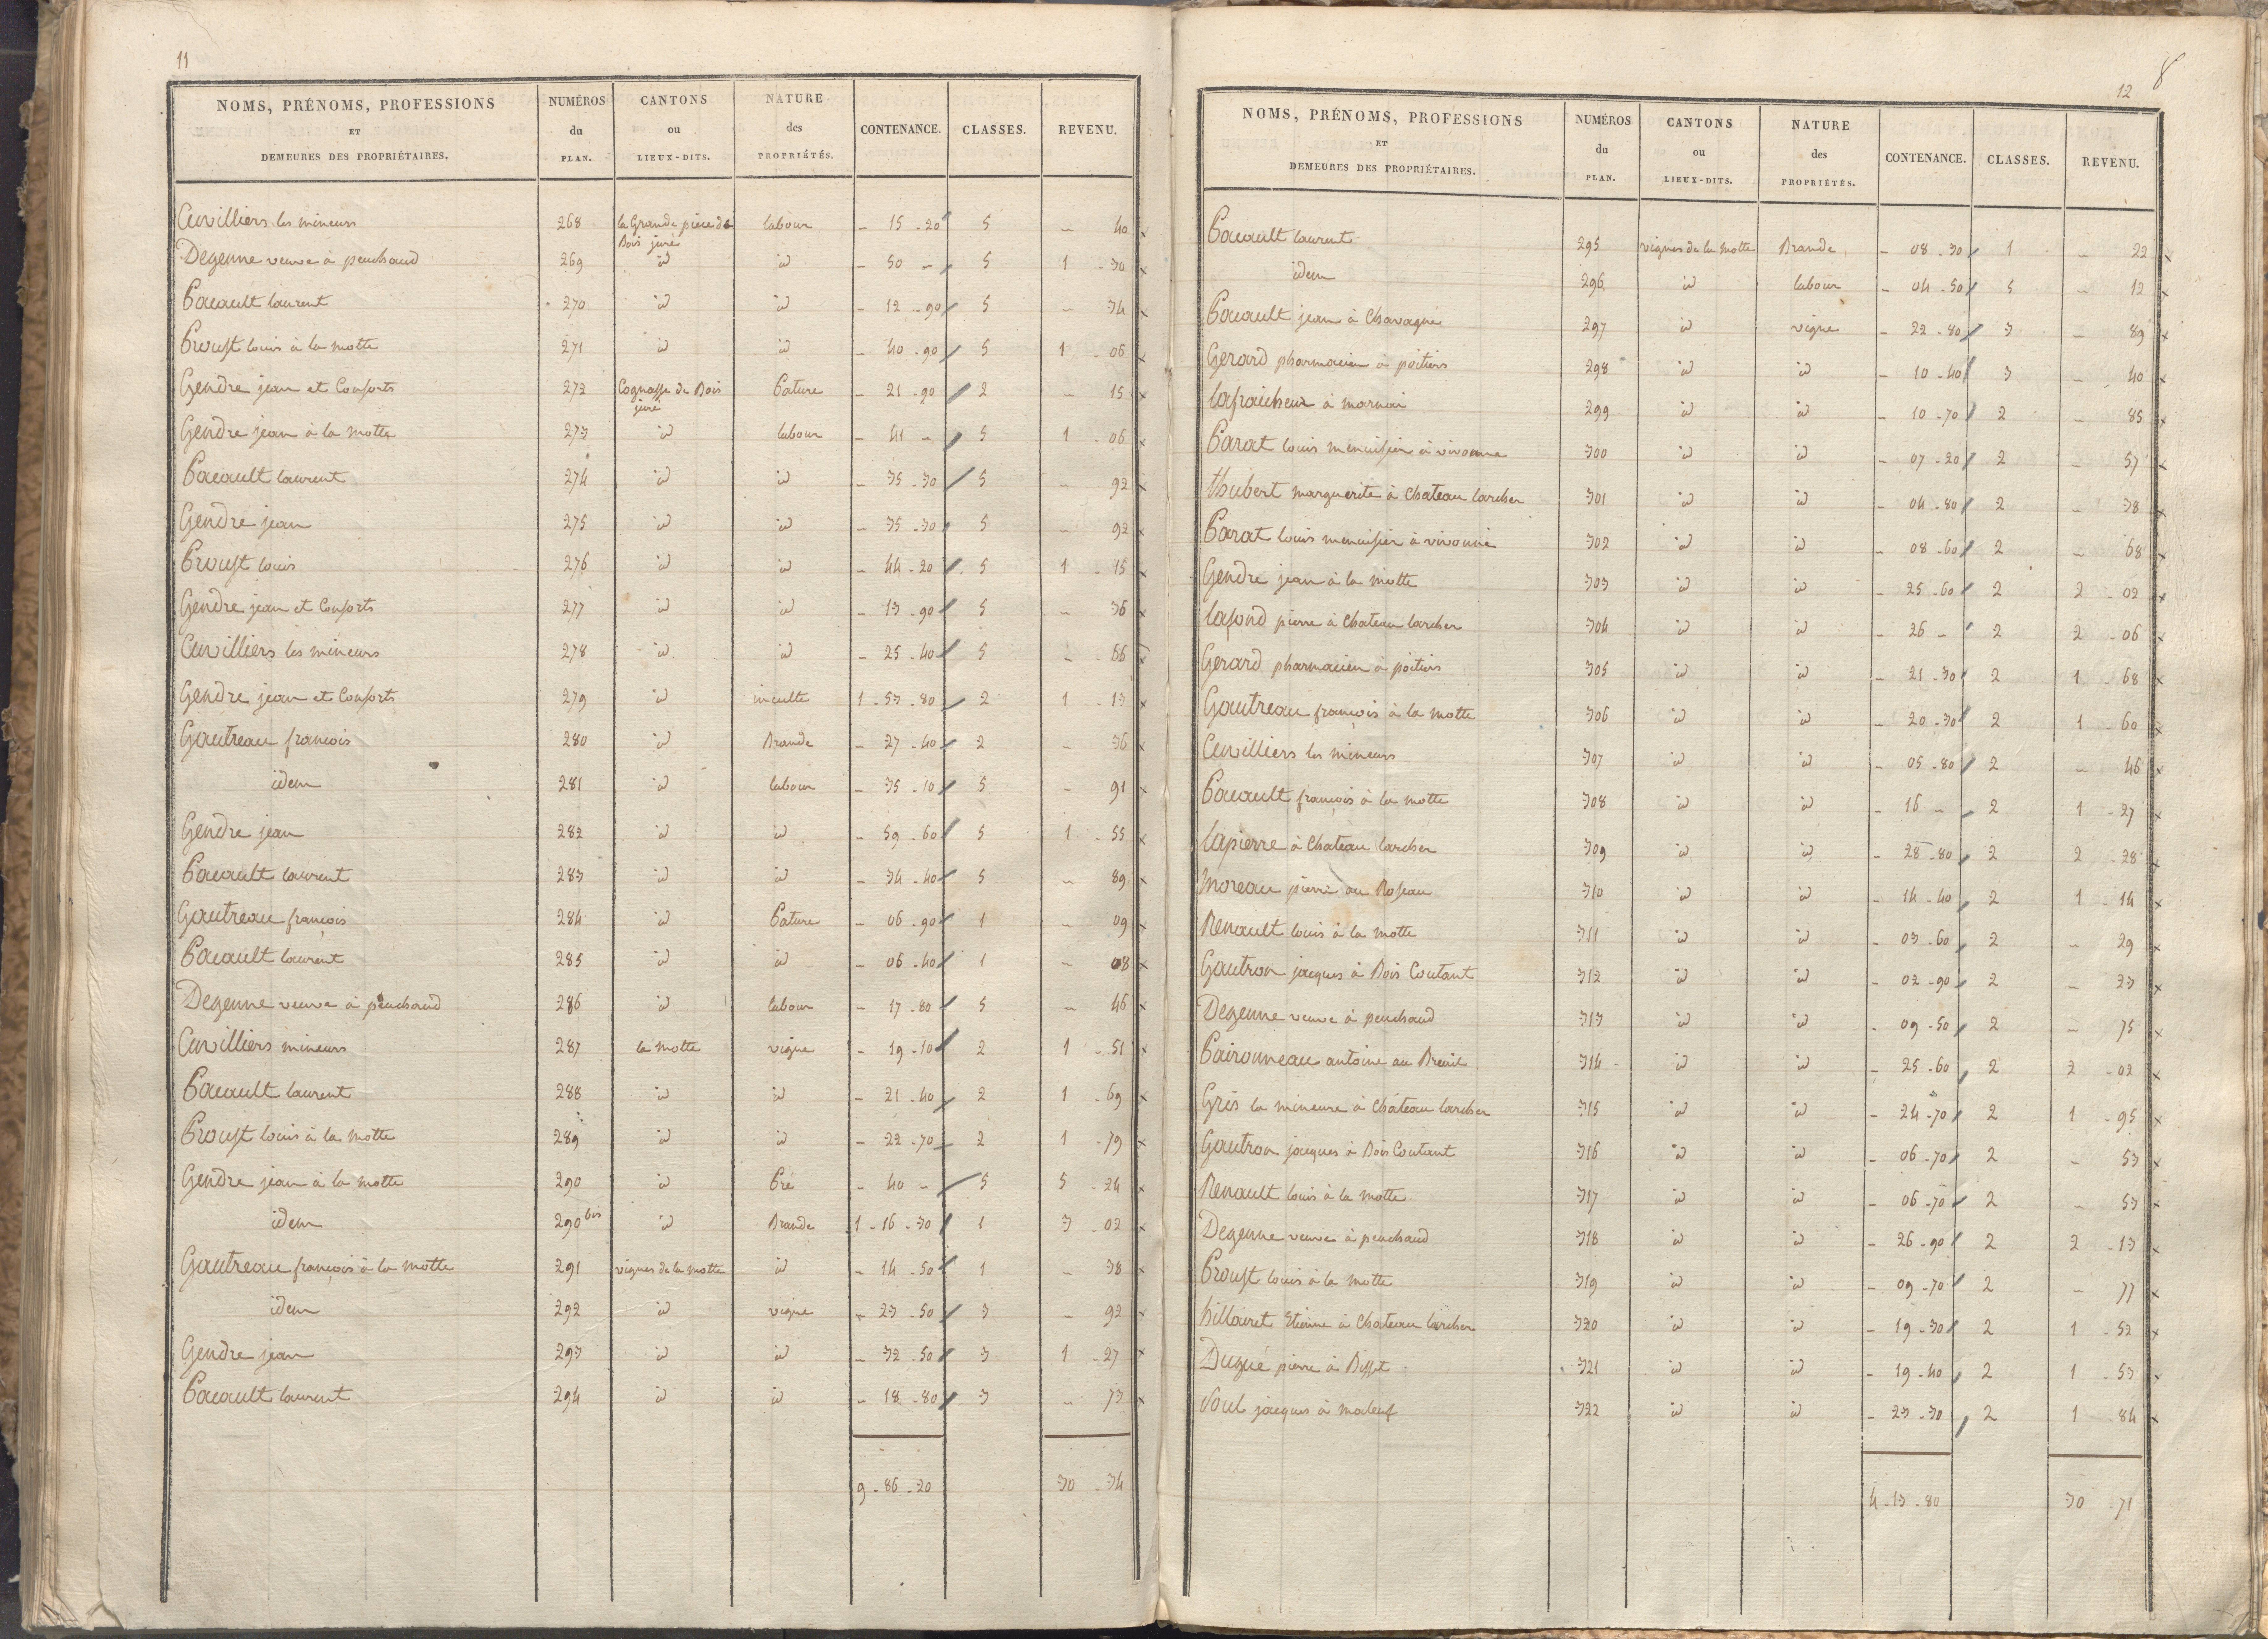 11
NOMS, PRÉNOMS, PROFESSIONS ET DEMEURES DES PROPRIÉTAIRES. NUMÉROS du PLAN. CANTONS ou LIEUX-DITS. NATURE des PROPRIÉTÉS. CONTENANCE. CLASSES. REVENU.
Cuvilliers les mineurs 268 la Grande pièce de Bois juré labour - 15 - 20 5 - 40
Degenne veuve à peuchaud 269 id id - 50 - 5 1 - 30
Pacault laurent 270 id id - 12 - 90 5 - 34
Proust louis à la motte 271 id id - 40 - 90 5 1 - 06
Gendre jean et Consorts 272 Cognasse de Bois juré Pature - 21 - 90 2 - 15
Gendre jean à la motte 273 id labour - 41 - 5 1 - 06
Pacault laurent 274 id id - 35 - 30 5 - 92
Gendre jean 275 id id - 35 - 30 5 - 92
Proust louis 276 id id - 44 - 20 5 1 - 15
Gendre jean et Consorts 277 id id - 13 - 90 5 - 36
Cuvilliers les mineurs 278 id id - 25 - 40 5 - 66
Gendre jean et Consorts 279 id inculte 1 - 53 - 80 2 1 - 13
Gautreau francois 280 id Brande - 27 - 40 2 - 36
idem 281 id labour - 35 - 10 5 - 91
Gendre jean 282 id id - 59 - 60 5 1 - 55
Pacault laurent 283 id id - 34 - 40 5 - 89
Gautreau françois 284 id Pature - 06 - 90 1 - 09
Pacault laurent 285 id id - 06 - 40 1 - 08
Degenne veuve à peuchaud 286 id labour - 17 - 80 5 - 46
Cuvilliers mineurs 287 la motte vigne - 19 - 10 2 1 - 51
Pacault laurent 288 id id - 21 - 40 2 1 - 69
Proust louis à la motte 289 id id - 22 - 70 2 1 - 79
Gendre jean à la motte 290 id Pré - 40 - 5 5 - 24
idem 290 bis id Brande 1 - 16 - 30 1 3 - 02
Gautreau françois à la motte 291 vignes de la motte id - 14 - 50 1 - 38
idem 292 id vigne - 23 - 50 3 - 92
Gendre jean 293 id id - 32 - 50 3 1 - 27
Pacault laurent 294 id id - 18 - 80 3 - 73
9 - 86 - 20 30 - 34
12 8
NOMS, PRÉNOMS, PROFESSIONS ET DEMEURES DES PROPRIÉTAIRES. NUMÉROS du PLAN. CANTONS ou LIEUX-DITS. NATURE des PROPRIÉTÉS. CONTENANCE. CLASSES. REVENU.
Pacault laurent 295 vignes de la motte Brande - 08 - 30 1 - 22
idem 296 id labour - 04 - 50 5 - 12
Pacault jean à Chavagne 297 id vigne - 22 - 80 3 - 89
Gerard pharmacien à poitiers 298 id id - 10 - 40 3 - 40
lafraicheur à marnai 299 id id - 10 - 70 2 - 85
Parat louis menuisier à vivonne 300 id id - 07 - 20 2 - 57
thubert marguerite à Chateau larcher 301 id id - 04 - 80 2 - 38
Parat louis menuisier à vivonne 302 id id - 08 - 60 2 - 68
Gendre jean à la motte 303 id id - 25 - 60 2 2 - 02
lafond pierre à Chateau larcher 304 id id - 26 - 2 2 - 06
Gerard pharmacien à poitiers 305 id id - 21 - 30 2 1 - 68
Gautreau françois à la motte 306 id id - 20 - 30 2 1 - 60
Cuvilliers les mineurs 307 id id - 05 - 80 2 - 46
Pacault françois à la motte 308 id id - 16 - 2 1 - 27
lapierre à Chateau larcher 309 id id - 28 - 80 2 2 - 28
moreau pierre au Roseau 310 id id - 14 - 40 2 1 - 14
Renault louis à la motte 311 id id - 03 - 60 2 - 29
Gautron jacques à Bois Coutant 312 id id - 02 - 90 2 - 23
Degenne veuve à peuchaud 313 id id - 09 - 50 2 - 75
Paironneau antoine au Breuil 314 id id - 25 - 60 2 2 - 02
Gris la mineure à Château larcher 315 id id - 24 - 70 2 1 - 95
Gautron jacques à Bois Coutant 316 id id - 06 - 70 2 - 53
Renault louis à la motte 317 id id - 06 - 70 2 - 53
Degenne veuve à peuchaud 318 id id - 26 - 90 2 2 - 13
Proust louis à la motte 319 id id - 09 - 70 2 - 77
hillairet Etienne à Chateau larcher 320 id id - 19 - 30 2 1 - 52
Dugué pierre à Disset 321 id id - 19 - 40 2 1 - 53
Soul jacques à maleuf 322 id id - 23 - 30 2 1 - 84
4 - 13 - 80 30 - 71